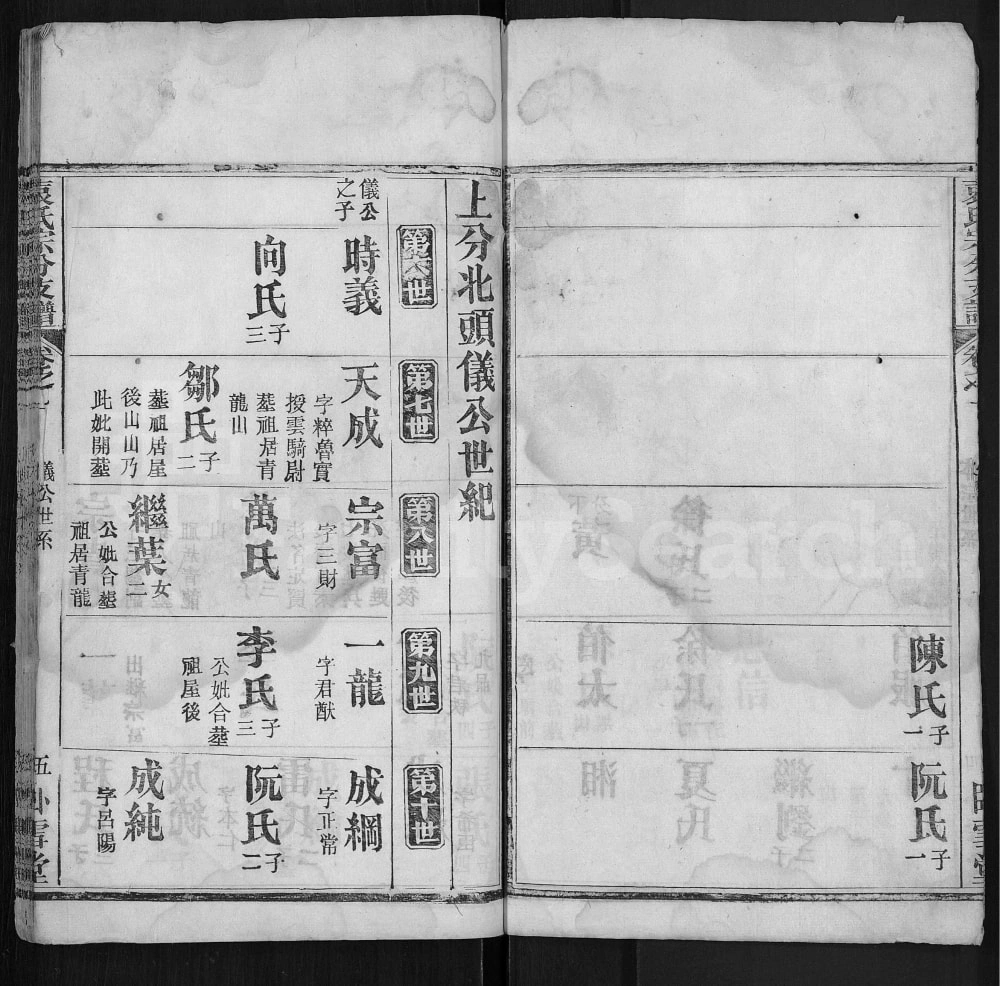 陳氏
子一
阮氏
子一
上分北頭儀公世紀
第六世
第七世
第八世
第九世
第十世
儀公
之子
時義
向氏
子三
天成
字粹魯實
授雲騎尉
塟祖居青
龍山
鄒氏
子二
塟祖居屋
後山山乃
此妣開塟
宗富
字三財
萬氏
繼葉
女二
公妣合塟
祖居青龍
一龍
字君猷
李氏
子三
公妣合塟
祖屋後
成綱
字正常
阮氏
子二
成純
字呂陽
袁氏宗分支譜
卷之一
儀公世系
五
臥雪堂